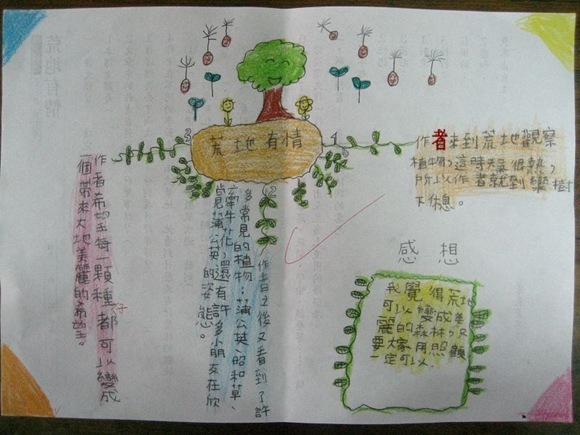 荒地有情
1
作者來到荒地觀察
植物,這時覺得很熱,
所以作者就到欒樹
下休息。
2
作者之後又看到了許
多常見的植物:蒲公英、昭和草、
牽牛花,還有許多小朋友在欣
賞蒲公英的姿態。
3
作者希望每一顆種子都可以變成
一個帶來大地美麗的希望。
感想
我覺得荒地
可以變成美
麗的森林,只
要大家用照顧
一定可以。